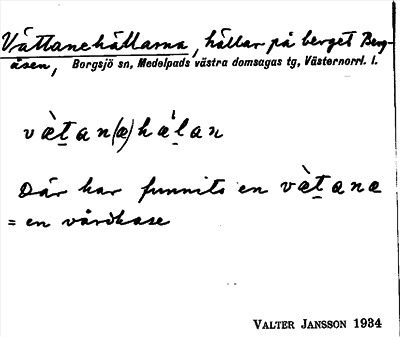 Vättanehällarna, hällar på berget Berg-
åsen, Borgsjö sn, Medelpads västra domsagas tg, Västernorrl. l.
væ̀t̠an(æ)hǽl̠an
Där har funnits en væ̀t̠ana
= en vårdkase
VALTER JANSSON 1934